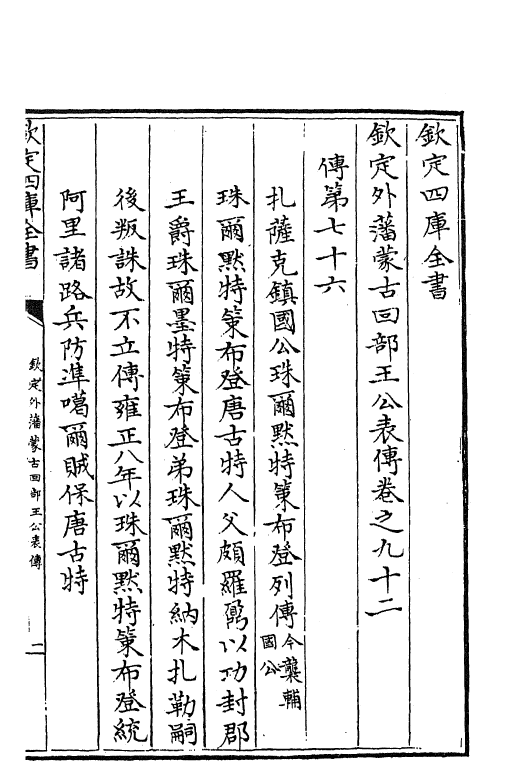 欽定四庫全書
欽定外藩蒙古回部王公表傳卷之九十二
傳第七十六
扎薩克鎮國公珠爾默特策布登列傳今襲輔國公
珠爾默特策布登唐古特人父頗羅鼐以功封郡
王爵珠爾墨特策布登弟珠爾默特納木扎勒嗣
後叛誅故不立傳雍正八年以珠爾默特策布登統
阿里諸路兵防準噶爾賊保唐古特
欽定四庫全書
欽定外藩蒙古回部王公表傳